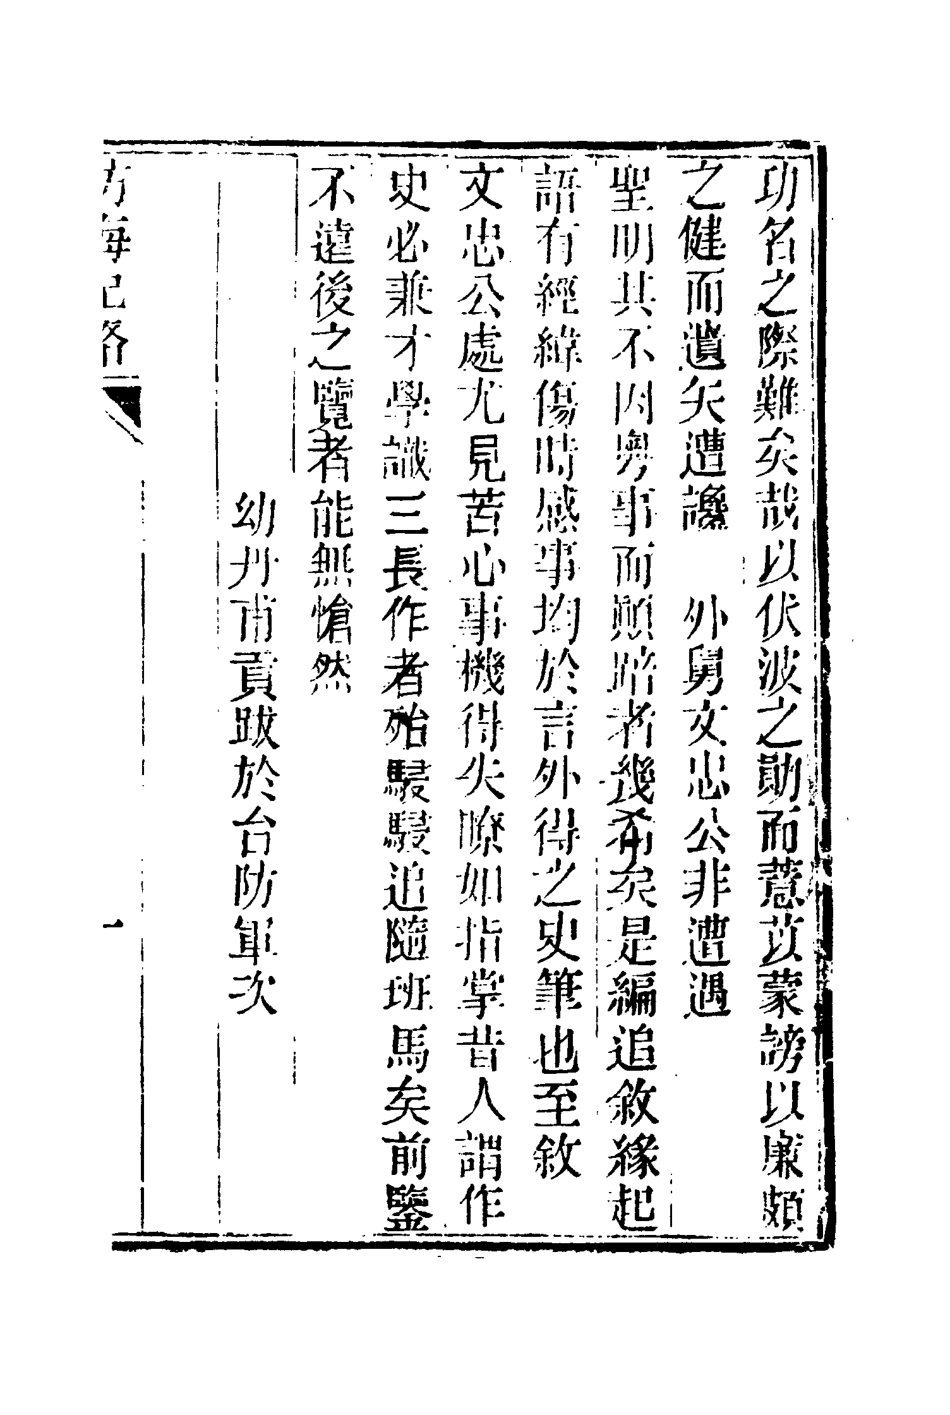 功名之際難矣哉以伏波之勛而薏苡蒙謗以廉頗
之健而遺矢遭讒　外舅文忠公非遭遇
聖明其不因粵事而顛踣者幾希矣是編追敘緣起
語有經緯傷時感事均於言外得之史筆也至敘
文忠公處尤見苦心事機得失瞭如指掌昔人謂作
史必兼才學識三長作者殆駸駸追隨班馬矣前鑒
不遠後之覽者能無愴然
幼丹甫貢跋於台防軍次
防海記略
一